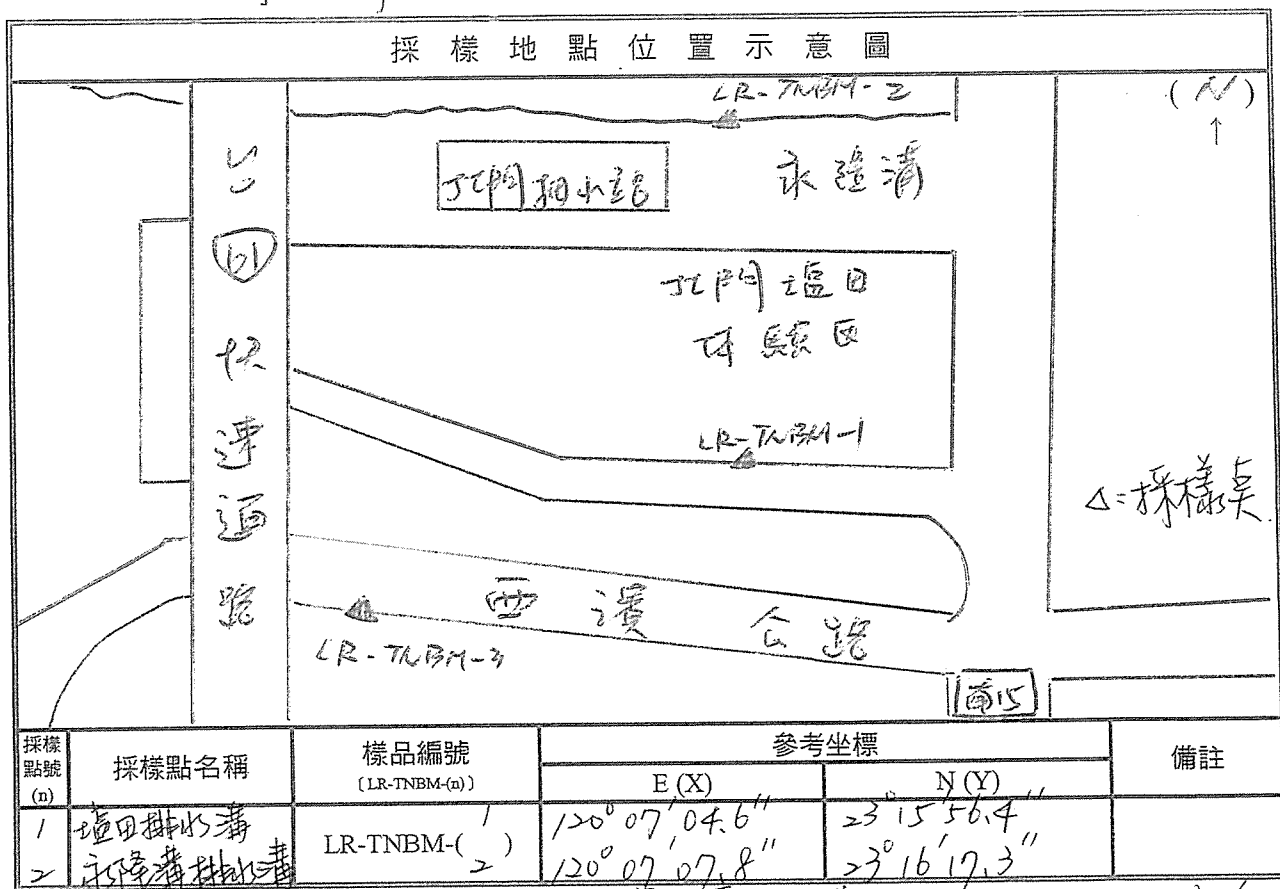 採樣地點位置示意圖
LR-TNBM-2
(N)
↑
台61快速道路
北門抽水站
永隆溝
北門塩田
体驗区
LR-TNBM-1
△=採樣点
西濱公路
LR-TNBM-3
南15
採樣點號(n) 採樣點名稱 樣品編號〔LR-TNBM-(n)〕 參考坐標 備註
E (X) N (Y)
1 塩田排水溝 LR-TNBM-(1) 120° 07' 04.6" 23° 15' 56.4"
2 永隆溝排水溝 LR-TNBM-(2) 120° 07' 07.8" 23° 16' 17.3"